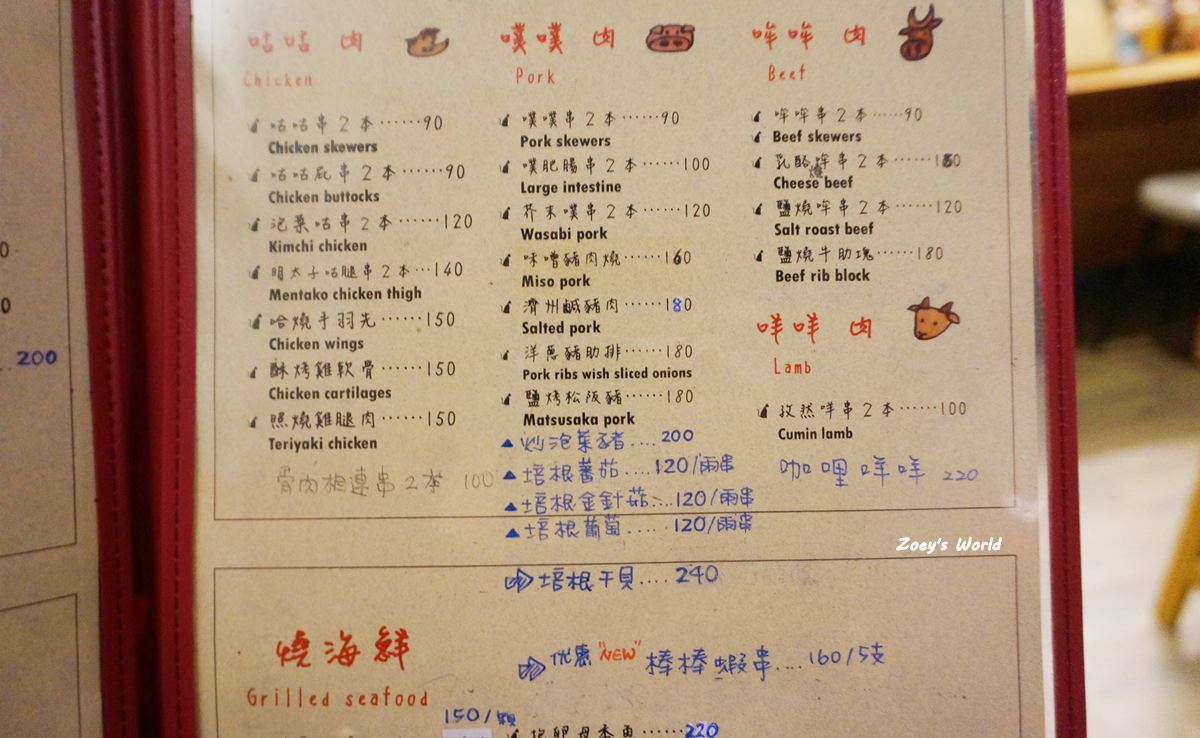 咕咕 肉
Chicken
咕咕串2本······90
Chicken skewers
咕咕屁串2本······90
Chicken buttocks
泡菜咕串2本······120
Kimchi chicken
明太子咕腿串2本···140
Mentako chicken thigh
哈燒手羽先······150
Chicken wings
酥烤雞軟骨······150
Chicken cartilages
照燒雞腿肉······150
Teriyaki chicken
骨肉相連串2本 100
噗噗 肉
Pork
噗噗串2本······90
Pork skewers
噗肥腸串2本······100
Large intestine
芥末噗串2本······120
Wasabi pork
味噌豬肉燒······160
Miso pork
濟州鹹豬肉······180
Salted pork
洋蔥豬肋排······180
Pork ribs wish sliced onions
鹽烤松阪豬······180
Matsusaka pork
▲炒泡菜豬....200
▲培根蕃茄....120/兩串
▲培根金針菇....120/兩串
▲培根葡萄.....120/兩串
培根干貝....240
哞哞 肉
Beef
哞哞串2本······90
Beef skewers
乳酪哞串2本······180
燒
Cheese beef
鹽燒哞串2本······120
Salt roast beef
鹽燒牛肋塊······180
Beef rib block
咩咩 肉
Lamb
孜然咩串2本······100
Cumin lamb
咖哩咩咩 220
Zoey's World
燒海鮮
Grilled seafood
优惠"NEW"棒棒蝦串....160/5支
150/顆
220
200
0
0